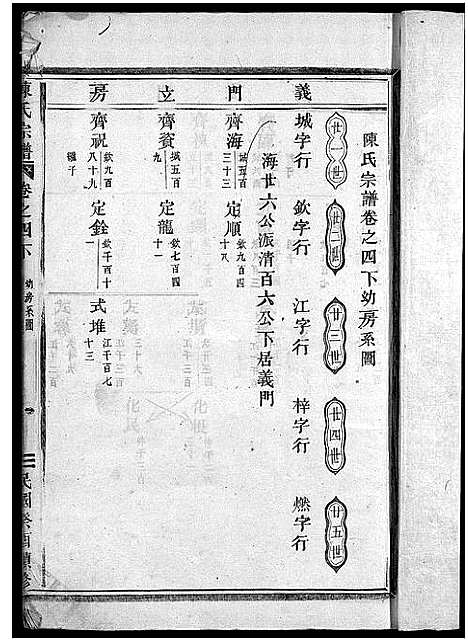 陳氏宗譜卷之四下幼房系圖
廿一世 廿二世 廿三世 廿四世 廿五世
城字行 欽字行 江字行 梓字行 燃字行
義門立房
海廿六公派清百六公下居義門
齊海 城五百三十三 定順 欽九百十八
齊資 城五百九 定龍 欽七百四十一
齊祝 欽九百八十九 繼子 定銓 欽千百十一 式堆 江千百七十三
陳氏宗譜 卷之四下 幼房系圖
民國